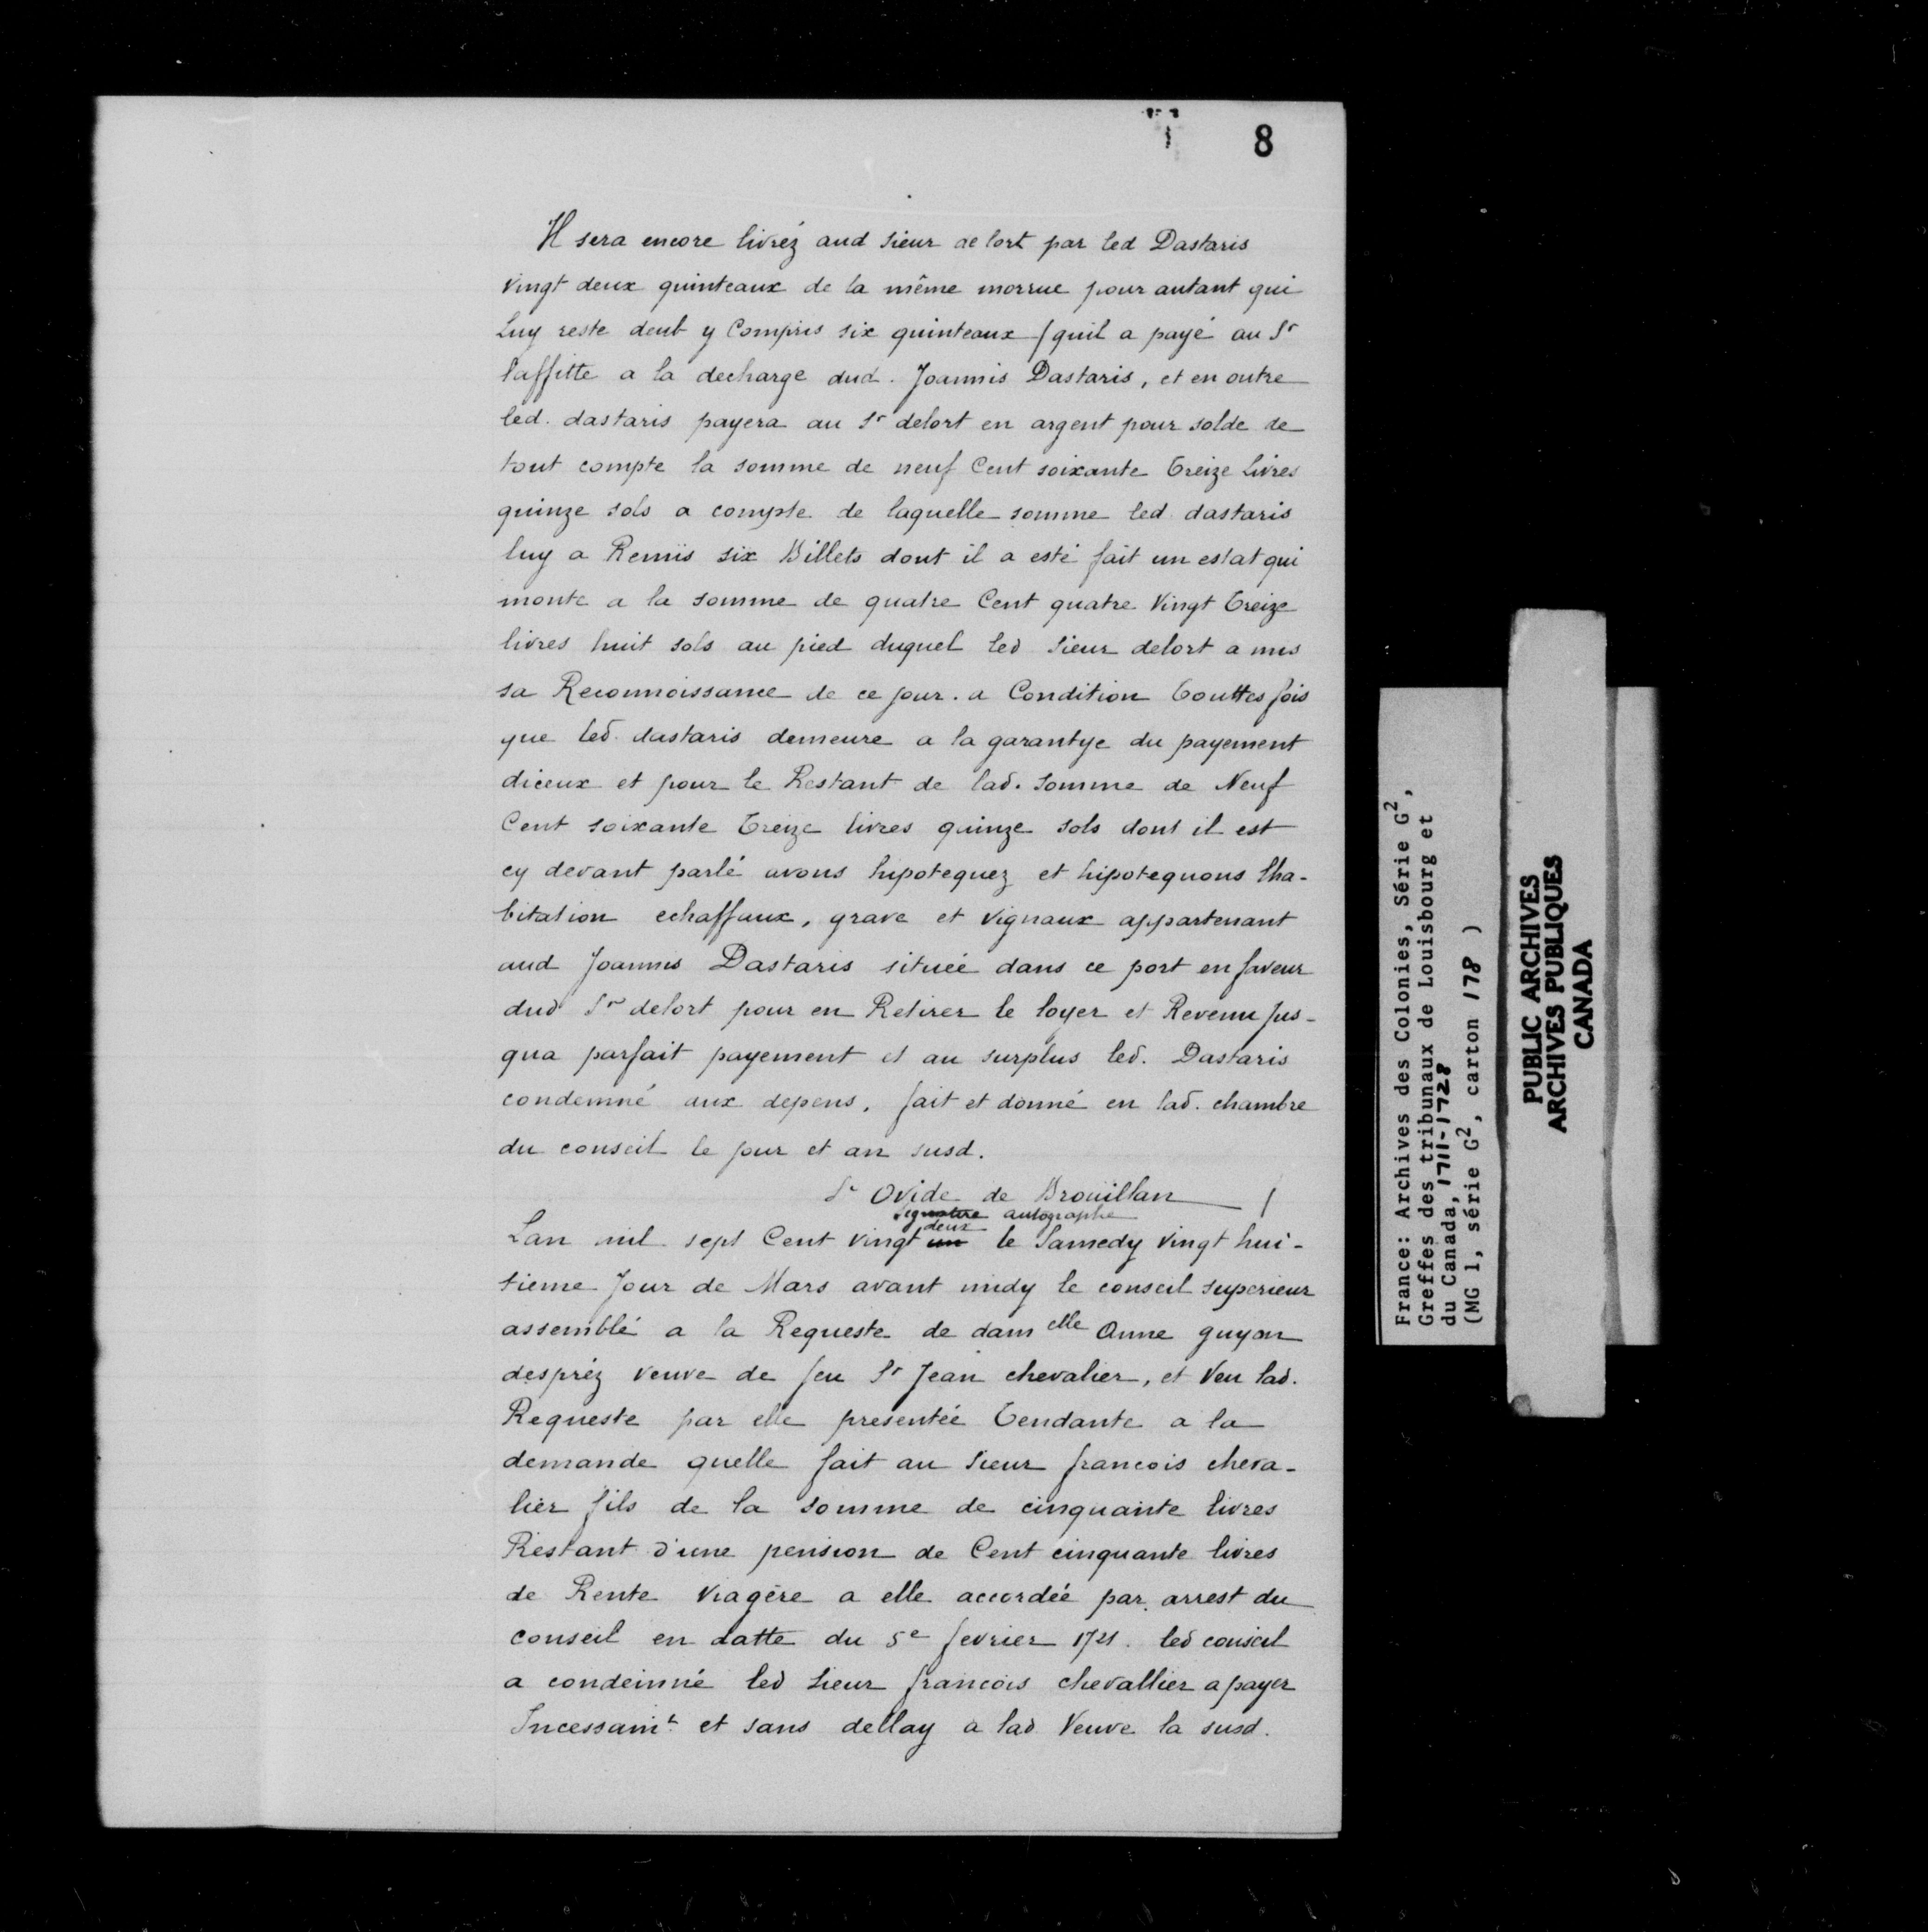 8
Il sera encore livréz aud sieur de lort par led Dastaris
vingt deux quinteaux de la même morrue pour autant qui
Luy reste deub y Compris six quinteaux quil a payé au Sr
laffitte a la decharge dud. Joannis Dastaris, et en outre
led. dastaris payera au Sr delort en argent pour solde de
tout compte la somme de neuf Cent soixante treize livres
quinze sols a compte de laquelle somme led dastaris
luy a Remiis six Billets dont il a esté fait un estat qui
monte a la somme de quatre Cent quatre Vingt treize
livres huit sols au pied duquel led sieur delort a mis
sa Reconnoissance de ce jour. a Condition touttes fois
que led. dastaris demeure a la garantye du payement
diceux et pour le Restant de lad. somme de Neuf
Cent soixante treize livres quinze sols dont il est
cy devant parlé avons hipotequez et hipotequons lha-
bitation echaffaux, grave et vignaux appartenant
aud Joannis Dastaris située dans ce port en faveur
dud Sr delort pour en Retirer le loyer et Revenu jus-
qua parfait payement et au surplus led. Dastaris
condemné aux depens, fait et donné en lad. chambre
du conseil le jour et an susd.
St Ovide de Brouillan
signature autographe
deux
Lan mil sept Cent vingt un le Samedy vingt hui-
tieme Jour de Mars avant midy le conseil superieur
assemblé a la Requeste de damelle Anne guyon
despréz veuve de feu Sr Jean chevalier, et Veu lad.
Requeste par elle presentée tendante a la
demande quelle fait au sieur francois cheva-
lier fils de la somme de cinquante livres
Restant d'une pension de Cent cinquante livres
de Rente viagère a elle accordée par arrest du
conseil en datte du 5e fevrier 1721. led conseil
a condemné led sieur francois chevallier a payer
Incessamt. et sans dellay a lad Veuve la susd.
France: Archives des Colonies, Série G2,
Greffes des tribunaux de Louisbourg et
du Canada, 1711-1728
(MG 1, série G2, carton 178 )
PUBLIC ARCHIVES
ARCHIVES PUBLIQUES
CANADA